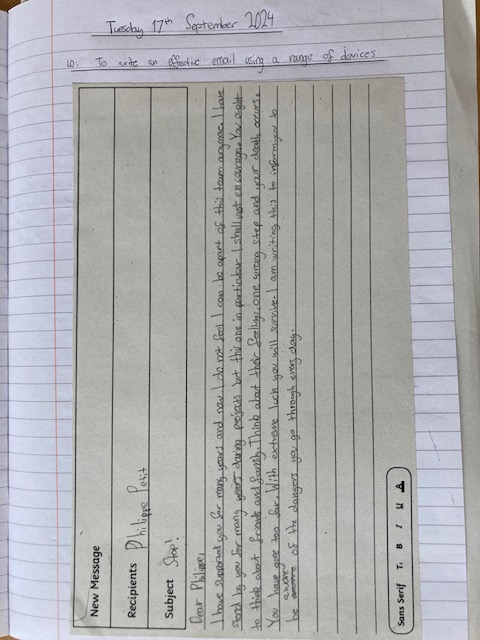 Tuesday 17th September 2024
LO: To write an effective email using a range of devices
New Message
Recipients Philippe Petit
Subject Stop!
Dear Philippe,
I have supported you for many years and now I do not feel I can be apart of this team anymore. I have
stand by you for many years during projects but this one in particular I shall not encourage. You ought
to think about friends and family. Think about their feelings, one wrong step and your death occurs.
You have gone too far. With extreme luck you will survive. I am writing this to inform you to
be aware of the dangers you go through every day.
Sans Serif T B I U A